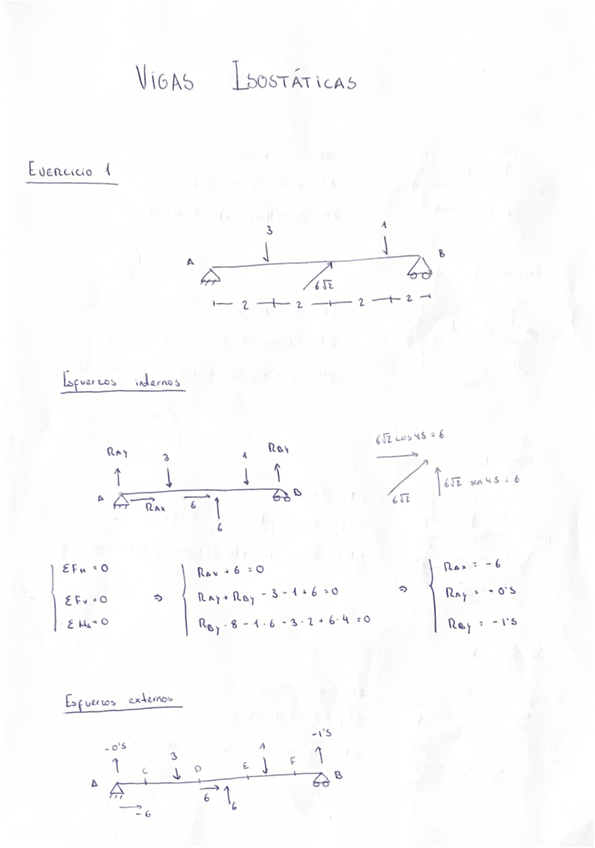 VIGAS ISOSTÁTICAS
EJERCICIO 1
3
1
A
B
6√2
2 2 2 2
Esfuerzos internos
RAy 3 1 RBy
A
B
RAx
6
6
6√2 cos 45 = 6
6√2 sen 45 = 6
6√2
ΣFH = 0
ΣFV = 0
ΣMA = 0
⇒
RAx + 6 = 0
RAy + RBy - 3 - 1 + 6 = 0
RBy · 8 - 1 · 6 - 3 · 2 + 6 · 4 = 0
⇒
RAx = -6
RAy = -0'5
RBy = -1'5
Esfuerzos externos
-0'5 3 1 -1'5
A C D E F B
-6
6
6